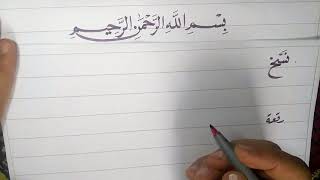 بِسْمِ اللّٰهِ الرَّحْمٰنِ الرَّحِيمِ
نَسْخ
رقعة